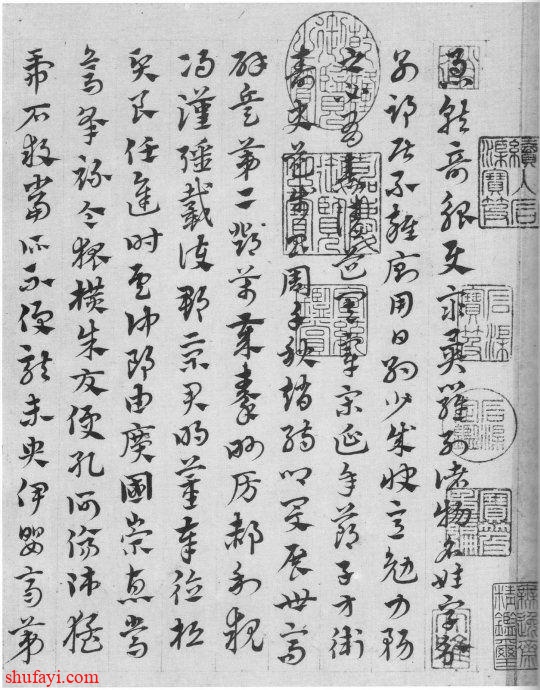 急就奇觚與眾異羅列諸物名姓字分
別部居不雜廁用日約少誠快意勉力務
之必有憙宋延年鄭子方衛
壽史步昌周千秋趙孺卿爰展世高
辟兵第二鄧萬歲秦眇房郝利親
馮漢彊戴護郡景君明董奉德桓
賢良任逢時侯仲郎由廣國榮惠常
烏承祿令狐橫朱交便孔何傷師猛
虎石敢當所不侵龍未央伊嬰齊
乾隆御覽之寶
嘉慶御覽之寶
石渠寶笈
無逸齋精鑑璽
shufayi.com